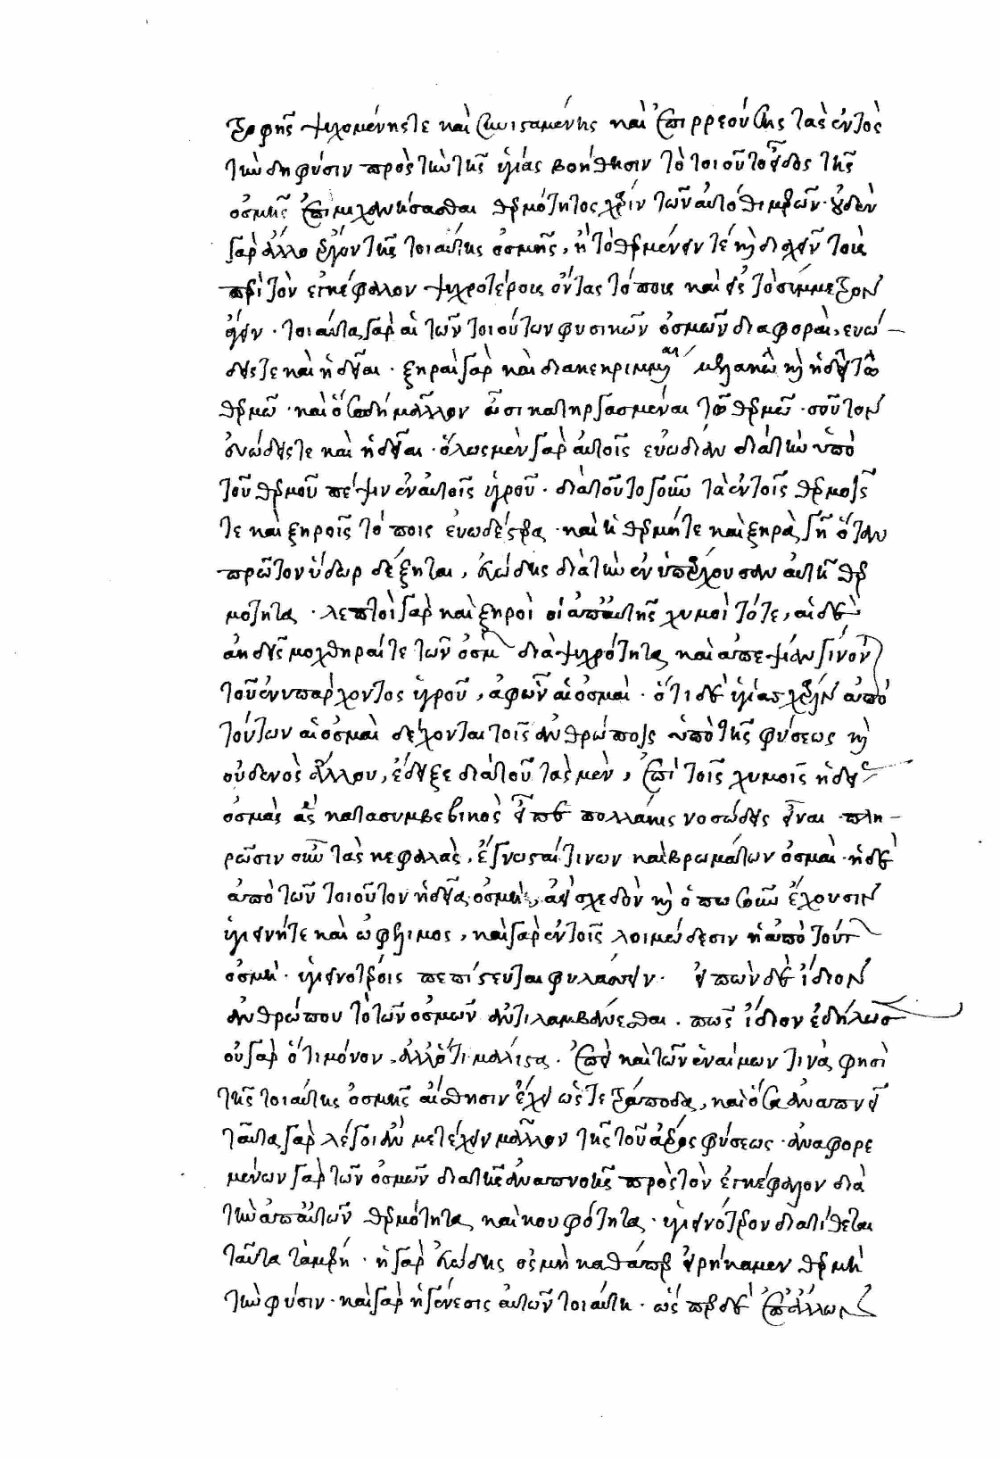 τροφῆς ψυχομένης τε καὶ συνισταμένης καὶ ἐπιρρεούσης τὰς ἐντὸς
τὴν δὴ φύσιν πρὸς τὴν τῆς ὑγίας βοήθησιν τὸ τοιοῦτο εἶδος τῆς
ὀσμῆς ἐπιμηχανήσασθαι θερμότητος χάριν τῶν αὐτόθι μερῶν· οὐδὲν
γὰρ ἄλλο ἔργον τῆς τοιαύτης ὀσμῆς, ἢ τὸ θερμαίνειν τε καὶ διαχεῖν τοὺς
περὶ τὸν ἐγκέφαλον ψυχροτέρους ὄντας τόπους καὶ εἰς τὸ σύμμετρον
ἄγειν· τοιαῦται γὰρ αἱ τῶν τοιούτων φυσικῶν ὀσμῶν διαφοραὶ, εὐώ-
δεις τε καὶ ἡδεῖαι· ξηραὶ γὰρ καὶ διακεκριμέναι καὶ ἡδεῖ τῶ
θερμῶ· καὶ ὅσα δὴ μᾶλλον ὦσι κατηργασμέναι τῶ θερμῶ·
εὐώδεις τε καὶ ἡδεῖαι· ὅλως μὲν γὰρ αὐτοῖς εὐωδίαν διὰ τὴν ὑπὸ
τοῦ θερμοῦ πέψιν ἐν αὐτοῖς ὑγροῦ· διὰ τοῦτο γοῦν τὰ ἐν τοῖς θερμοῖς
τε καὶ ξηροῖς τόποις εὐωδέστερα· καὶ ἡ θερμή τε καὶ ξηρὰ γῆ ὅταν
πρῶτον ὕδωρ δέξηται, εὐώδης διὰ τὴν ἐνυπάρχουσαν αὐτῆ θερ
μότητα· λεπτοὶ γὰρ καὶ ξηροὶ οἱ ἀπ' αὐτῆς χυμοὶ τότε, αἱ δὲ
ἀηδεῖς μοχθηραί τε τῶν ὀσμῶν διὰ ψυχρότητα καὶ ἀπεψίαν γίνονται
τοῦ ἐνυπάρχοντος ὑγροῦ, ἀφ' ὧν αἱ ὀσμαί· ὅτι δὲ ὑγίας χάριν ἀπὸ
τούτων αἱ ὀσμαὶ δέχονται τοῖς ἀνθρώποις ὑπὸ τῆς φύσεως καὶ
οὐδενὸς ἄλλου, ἔδειξε διὰ τοῦ τὰς μὲν, ἐπὶ τοῖς χυμοῖς ἡδείας
ὀσμὰς ἃς κατὰ συμβεβηκὸς εἶπε πολλάκις νοσώδεις εἶναι· πλη-
ροῦσιν οὖν τὰς κεφαλὰς, ἔγνωσταί τινων καὶ βρωμάτων ὀσμαί· ἡ δὲ
ἀπὸ τῶν τοιούτων ἡδεῖα ὀσμὴ, ἀεὶ σχεδὸν καὶ ὁπωσοῦν ἔχουσιν
ὑγιεινή τε καὶ ὠφέλιμος, καὶ γὰρ ἐν τοῖς λοιμώδεσιν ἡ ἀπὸ τούτων
ὀσμὴ· ὑγιεινοτέρους πεπίστευται φυλάττειν· εἰπὼν δὲ ἴδιον
ἀνθρώπου τὸ τῶν ὀσμῶν ἀντιλαμβάνεσθαι. πῶς ἴδιον ἐδήλωσεν
οὐ γὰρ ὅτι μόνον, ἀλλ' ὅτι μάλιστα. ἐπεὶ καὶ τῶν ἐναίμων τινά φησὶ
τῆς τοιαύτης ὀσμῆς αἴσθησιν ἔχειν ὡς τετράποδα, καὶ ὅσα ἀναπνεῖ
ταῦτα γὰρ λέγοι ἂν μετέχειν μᾶλλον τῆς τοῦ ἀέρος φύσεως· ἀναφερο
μένων γὰρ τῶν ὀσμῶν διὰ τῆς ἀναπνοῆς πρὸς τὸν ἐγκέφαλον διὰ
τὴν ἀπ' αὐτῶν θερμότητα καὶ κουφότητα· ὑγιεινότερον διατίθεται
ταῦτα τὰ μέρη· ἡ γὰρ εὐώδης ὀσμὴ καθάπερ εἰρήκαμεν θερμὴ
τὴν φύσιν· καὶ γὰρ ἡ γένεσις αὐτῶν τοιαύτη· ὥσπερ δὲ ἐπ' ἄλλων